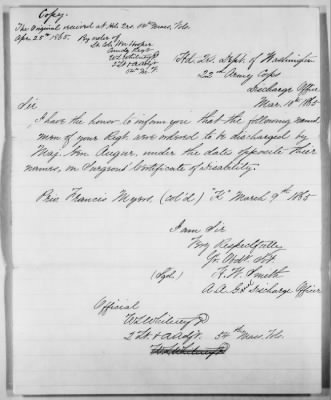 Copy.
The Original received at Hd. Qrs. 54th Mass. Vols.
Apr. 25th 1865. By order of
Lt. Col. Wm Hooper
Comdg Regt
W.L. Whitney Jr
2 Lt. & Adjt
54th M.V.
Hd. Qr. Dept. of Washington
22nd Army Corps
Discharge Office
Mar. 10th 1865
Sir
I have the honor to inform you that the following named
men of your Regt. were ordered to be discharged by
Maj. Gen. Augur, under the dates opposite their
names, on Surgeons Certificate of Disability.
Priv. Francis Myers, (col'd) "K" March 9th 1865
I am Sir
Very Respectfully
Yr. Obdt. Svt.
(Sgd.) H. W. Smith
A. A. G. & Discharge Officer
Official
W.L. Whitney Jr
2 Lt. & Adjt. 54th Mass. Vols.
W.L. Whitney Jr